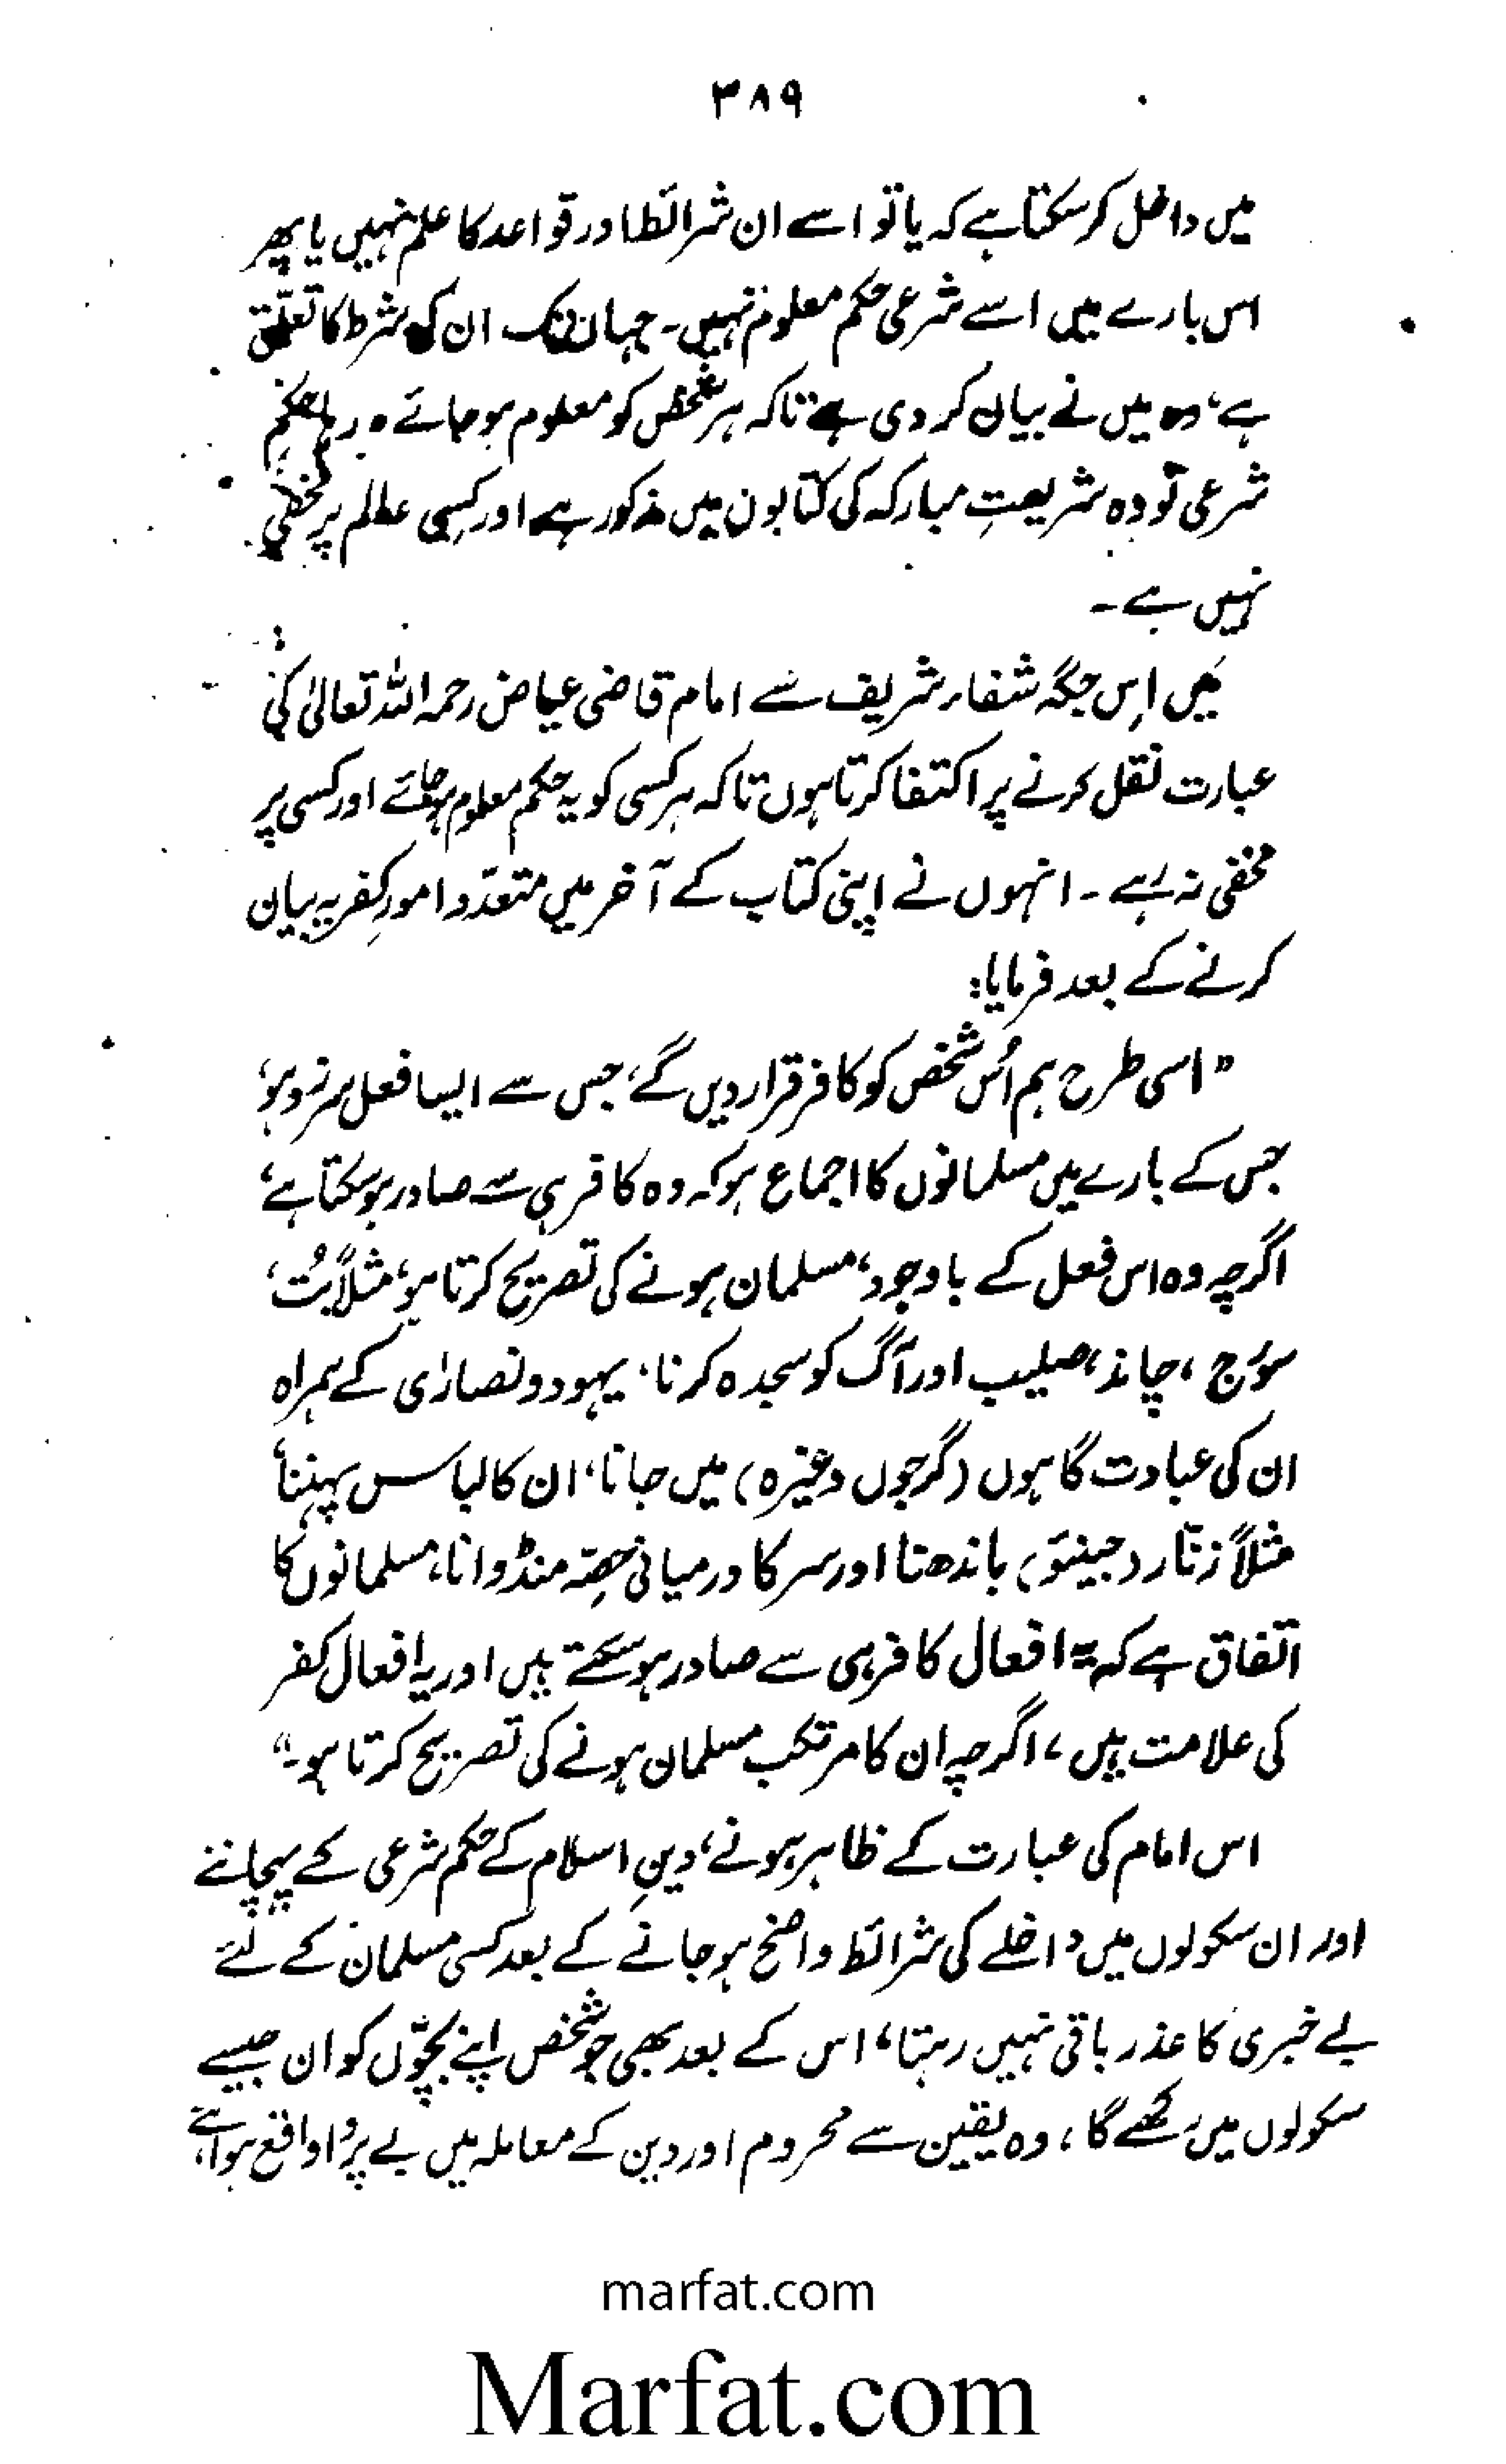 ۳۸۹
میں داخل کر سکتا ہے کہ یا تو اسے ان شرائط اور قواعد کا علم نہیں یا پھر
اس بارے میں اسے شرعی حکم معلوم نہیں۔ جہاں تک ان کی شرط کا تعلق
ہے، وہ میں نے بیان کر دی ہے تاکہ ہر شخص کو معلوم ہو جائے۔ رہا حکم
شرعی تو وہ شریعتِ مبارکہ کی کتابوں میں مذکور ہے اور کسِی عالم پر مخفی
نہیں ہے۔
مَیں اِس جگہ شفاء شریف سے امام قاضی عیاض رحمہ اللہ تعالیٰ کی
عبارت نقل کرنے پر اکتفا کرتا ہوں تاکہ ہر کسی کو یہ حکم معلوم ہو جائے اور کسی پر
مخفی نہ رہے۔ انہوں نے اپنی کتاب کے آخر میں متعدّد امورِ کفریہ بیان
کرنے کے بعد فرمایا:
"اسی طرح ہم اُس شخص کو کافر قرار دیں گے، جس سے ایسا فعل سرزد ہو،
جس کے بارے میں مسلمانوں کا اجماع ہو کہ وہ کافر ہی سے صادر ہو سکتا ہے،
اگرچہ وہ اس فعل کے باوجود، مسلمان ہونے کی تصریح کرتا ہو، مثلاً بُت،
سوُرج، چاند، صلیب اور آگ کو سجدہ کرنا، یہود و نصاریٰ کے ہمراہ
ان کی عبادت گاہوں (گرجوں وغیرہ) میں جانا، ان کا لباس پہننا،
مثلاً زنّار (جینئو) باندھنا اور سر کا درمیانی حصّہ منڈوانا، مسلمانوں کا
اتفاق ہے کہ یہ افعال کافر ہی سے صادر ہو سکتے ہیں اور یہ افعال کفر
کی علامت ہیں، اگرچہ ان کا مرتکب مسلمان ہونے کی تصریح کرتا ہو۔"
اس امام کی عبارت کے ظاہر ہونے، دینِ اسلام کے حکم شرعی کے پہچاننے
اور ان سکولوں میں داخلے کی شرائط واضح ہو جانے کے بعد کسی مسلمان کے لئے
بے خبری کا عذر باقی نہیں رہتا، اس کے بعد بھی جو شخص اپنے بچّوں کو ان جیسے
سکولوں میں رکھے گا، وہ یقین سے محروم اور دین کے معاملہ میں بے پروا واقع ہوا ہے،
marfat.com
Marfat.com